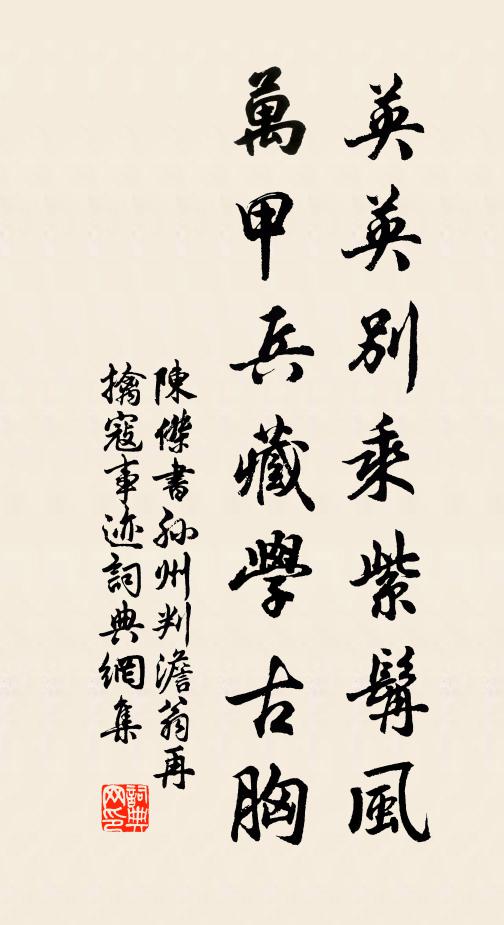 英英別乘紫髯風
萬甲兵藏學古胸
陳傑書孫州判澹翁再
擒寇事迹詞典網集
詞典
网印